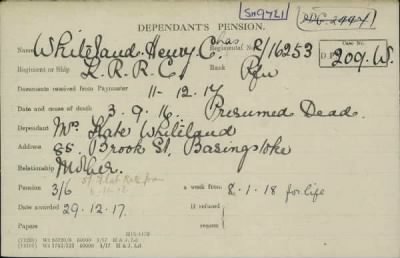 SH9721
DEPENDANT'S PENSION.
Name Whiteland Henry Chas Regimental No. R/16253
Case No.
D.P. 209.W.
Regiment or Ship K.R.R.C. Rank Rfn
Documents received from Paymaster 11-12-17
Date and cause of death 3.9.16. Presumed Dead.
Dependant Mrs Kate Whiteland
Address 85. Brook St. Basingstoke
Relationship Mother.
Pension 3/6 a week from 2-1-18 for life
Date awarded 29.12.17. if refused
Papers reason